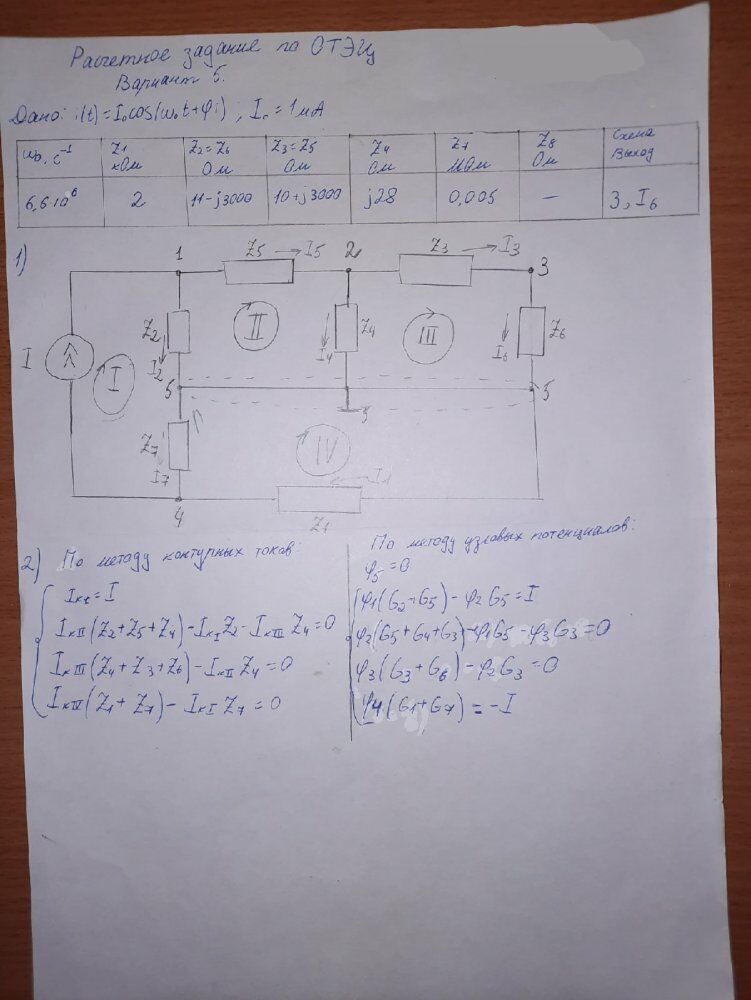 Расчетное задание по ОТЭЦ
Вариант 5.
Дано: i(t)=I₀cos(ω₀t+φi), I₀=1мА
ω₀, с⁻¹ Z1 кОм Z2=Z6 Ом Z3=Z5 Ом Z4 Ом Z7 МОм Z8 Ом Схема Выход
6,6·10⁶ 2 11-j3000 10+j3000 j28 0,005 — 3, I6
1)
1 Z5 → I5 2 Z3 → I3 3
I I Z2 I2 II I4 Z4 III I6 Z6
5 5 5
Z7 I7 IV I1
4 Z1
2) По методу контурных токов:
IкI=I
IкII(Z2+Z5+Z4)-IкIZ2-IкIIIZ4=0
IкIII(Z4+Z3+Z6)-IкIIZ4=0
IкIV(Z1+Z7)-IкIZ7=0
По методу узловых потенциалов:
φ5=0
φ1(G2+G5)-φ2G5=I
φ2(G5+G4+G3)-φ1G5-φ3G3=0
φ3(G3+G6)-φ2G3=0
φ4(G1+G7)=-I